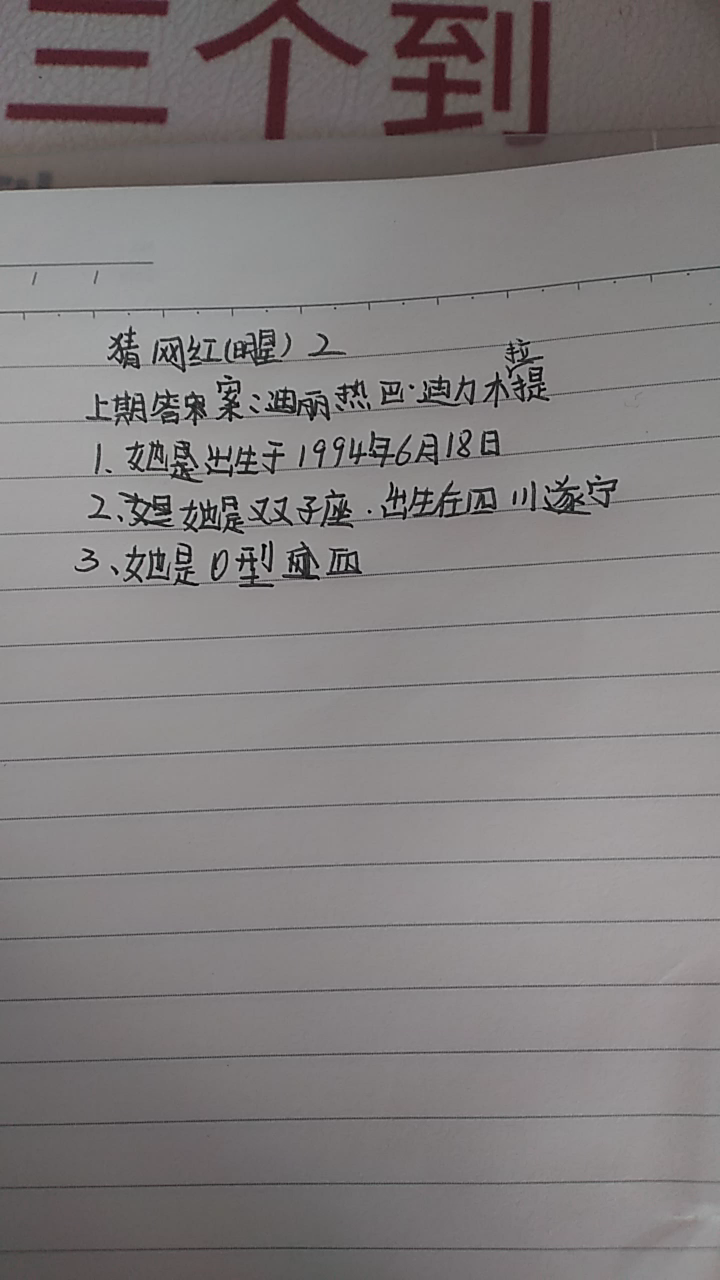 三个到
猜网红(明星)2
上期答案:迪丽热巴·迪力木拉提
1、她是出生于1994年6月18日
2、她是双子座.出生在四川遂宁
3、她是O型血